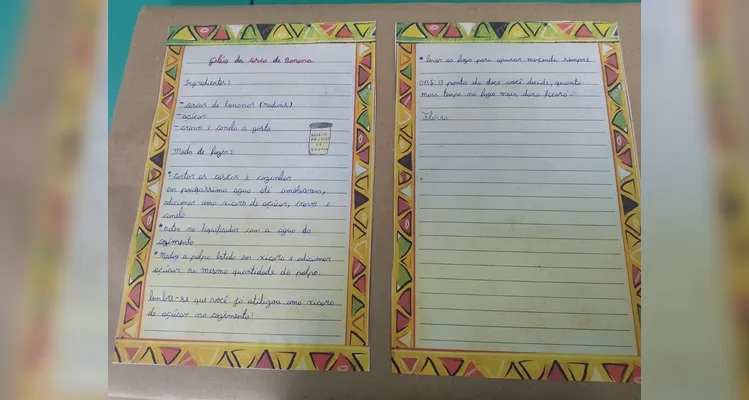 Geléia da casca de Banana
Ingredientes:
- cascas de bananas (maduras)
- açúcar
- cravo e canela a gosto
Modo de fazer:
• Cortar as cascas e cozinhar
em pouquíssima água até amolecerem,
adicionar uma xícara de açúcar, cravo e
canela
• Bater no liquidificador com a água do
cozimento
• Medir a polpa batida em xícara e adicionar
açúcar na mesma quantidade da polpa.
Lembre-se que você já utilizou uma xícara
de açúcar no cozimento!
• Levar ao fogo para apurar mexendo sempre
OBS: O ponto do doce você decide, quanto
mais tempo no fogo mais duro ficará.